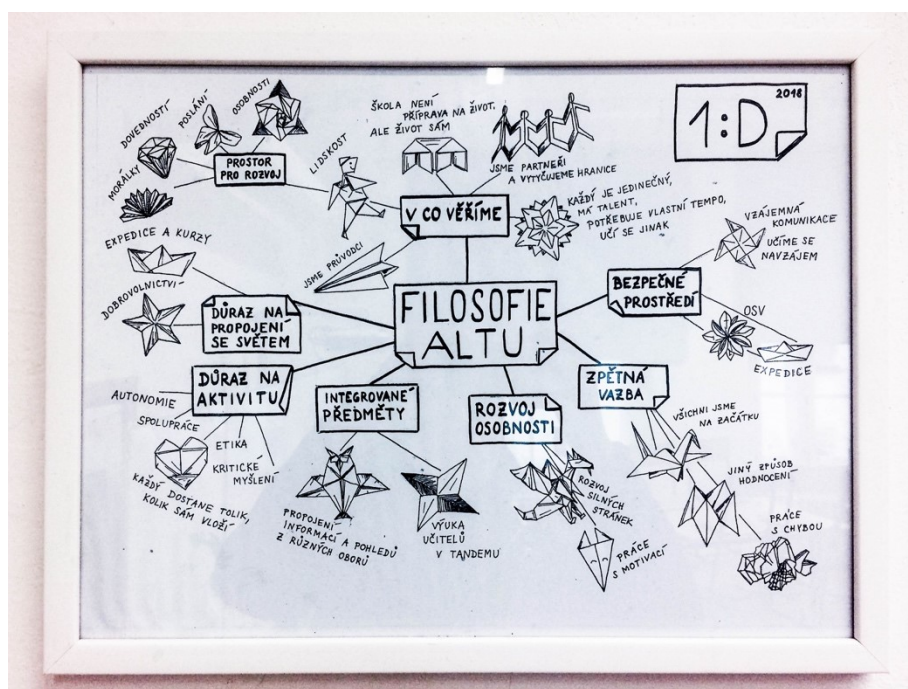 2018
1:D
FILOSOFIE
ALTU
PROSTOR
PRO ROZVOJ
MORÁLKY
DOVEDNOSTÍ
POSLÁNÍ
OSOBNOSTI
LIDSKOST
V CO VĚŘÍME
ŠKOLA NENÍ
PŘÍPRAVA NA ŽIVOT,
ALE ŽIVOT SÁM
JSME PARTNEŘI
A VYTYČUJEME HRANICE
KAŽDÝ JE JEDINEČNÝ,
MÁ TALENT,
POTŘEBUJE VLASTNÍ TEMPO,
UČÍ SE JINAK
JSME PRŮVODCI
BEZPEČNÉ
PROSTŘEDÍ
VZÁJEMNÁ
KOMUNIKACE
UČÍME SE
NAVZÁJEM
OSV
EXPEDICE
ZPĚTNÁ
VAZBA
VŠICHNI JSME
NA ZAČÁTKU
JINÝ ZPŮSOB
HODNOCENÍ
PRÁCE
S CHYBOU
ROZVOJ
OSOBNOSTI
ROZVOJ
SILNÝCH
STRÁNEK
PRÁCE
S MOTIVACÍ
INTEGROVANÉ
PŘEDMĚTY
PROPOJENÍ
INFORMACÍ A POHLEDŮ
Z RŮZNÝCH OBORŮ
VÝUKA
UČITELŮ
V TANDEMU
DŮRAZ NA
AKTIVITU
AUTONOMIE
SPOLUPRÁCE
ETIKA
KRITICKÉ
MYŠLENÍ
KAŽDÝ DOSTANE TOLIK,
KOLIK SÁM VLOŽÍ
DŮRAZ NA
PROPOJENÍ
SE SVĚTEM
EXPEDICE A KURZY
DOBROVOLNICTVÍ